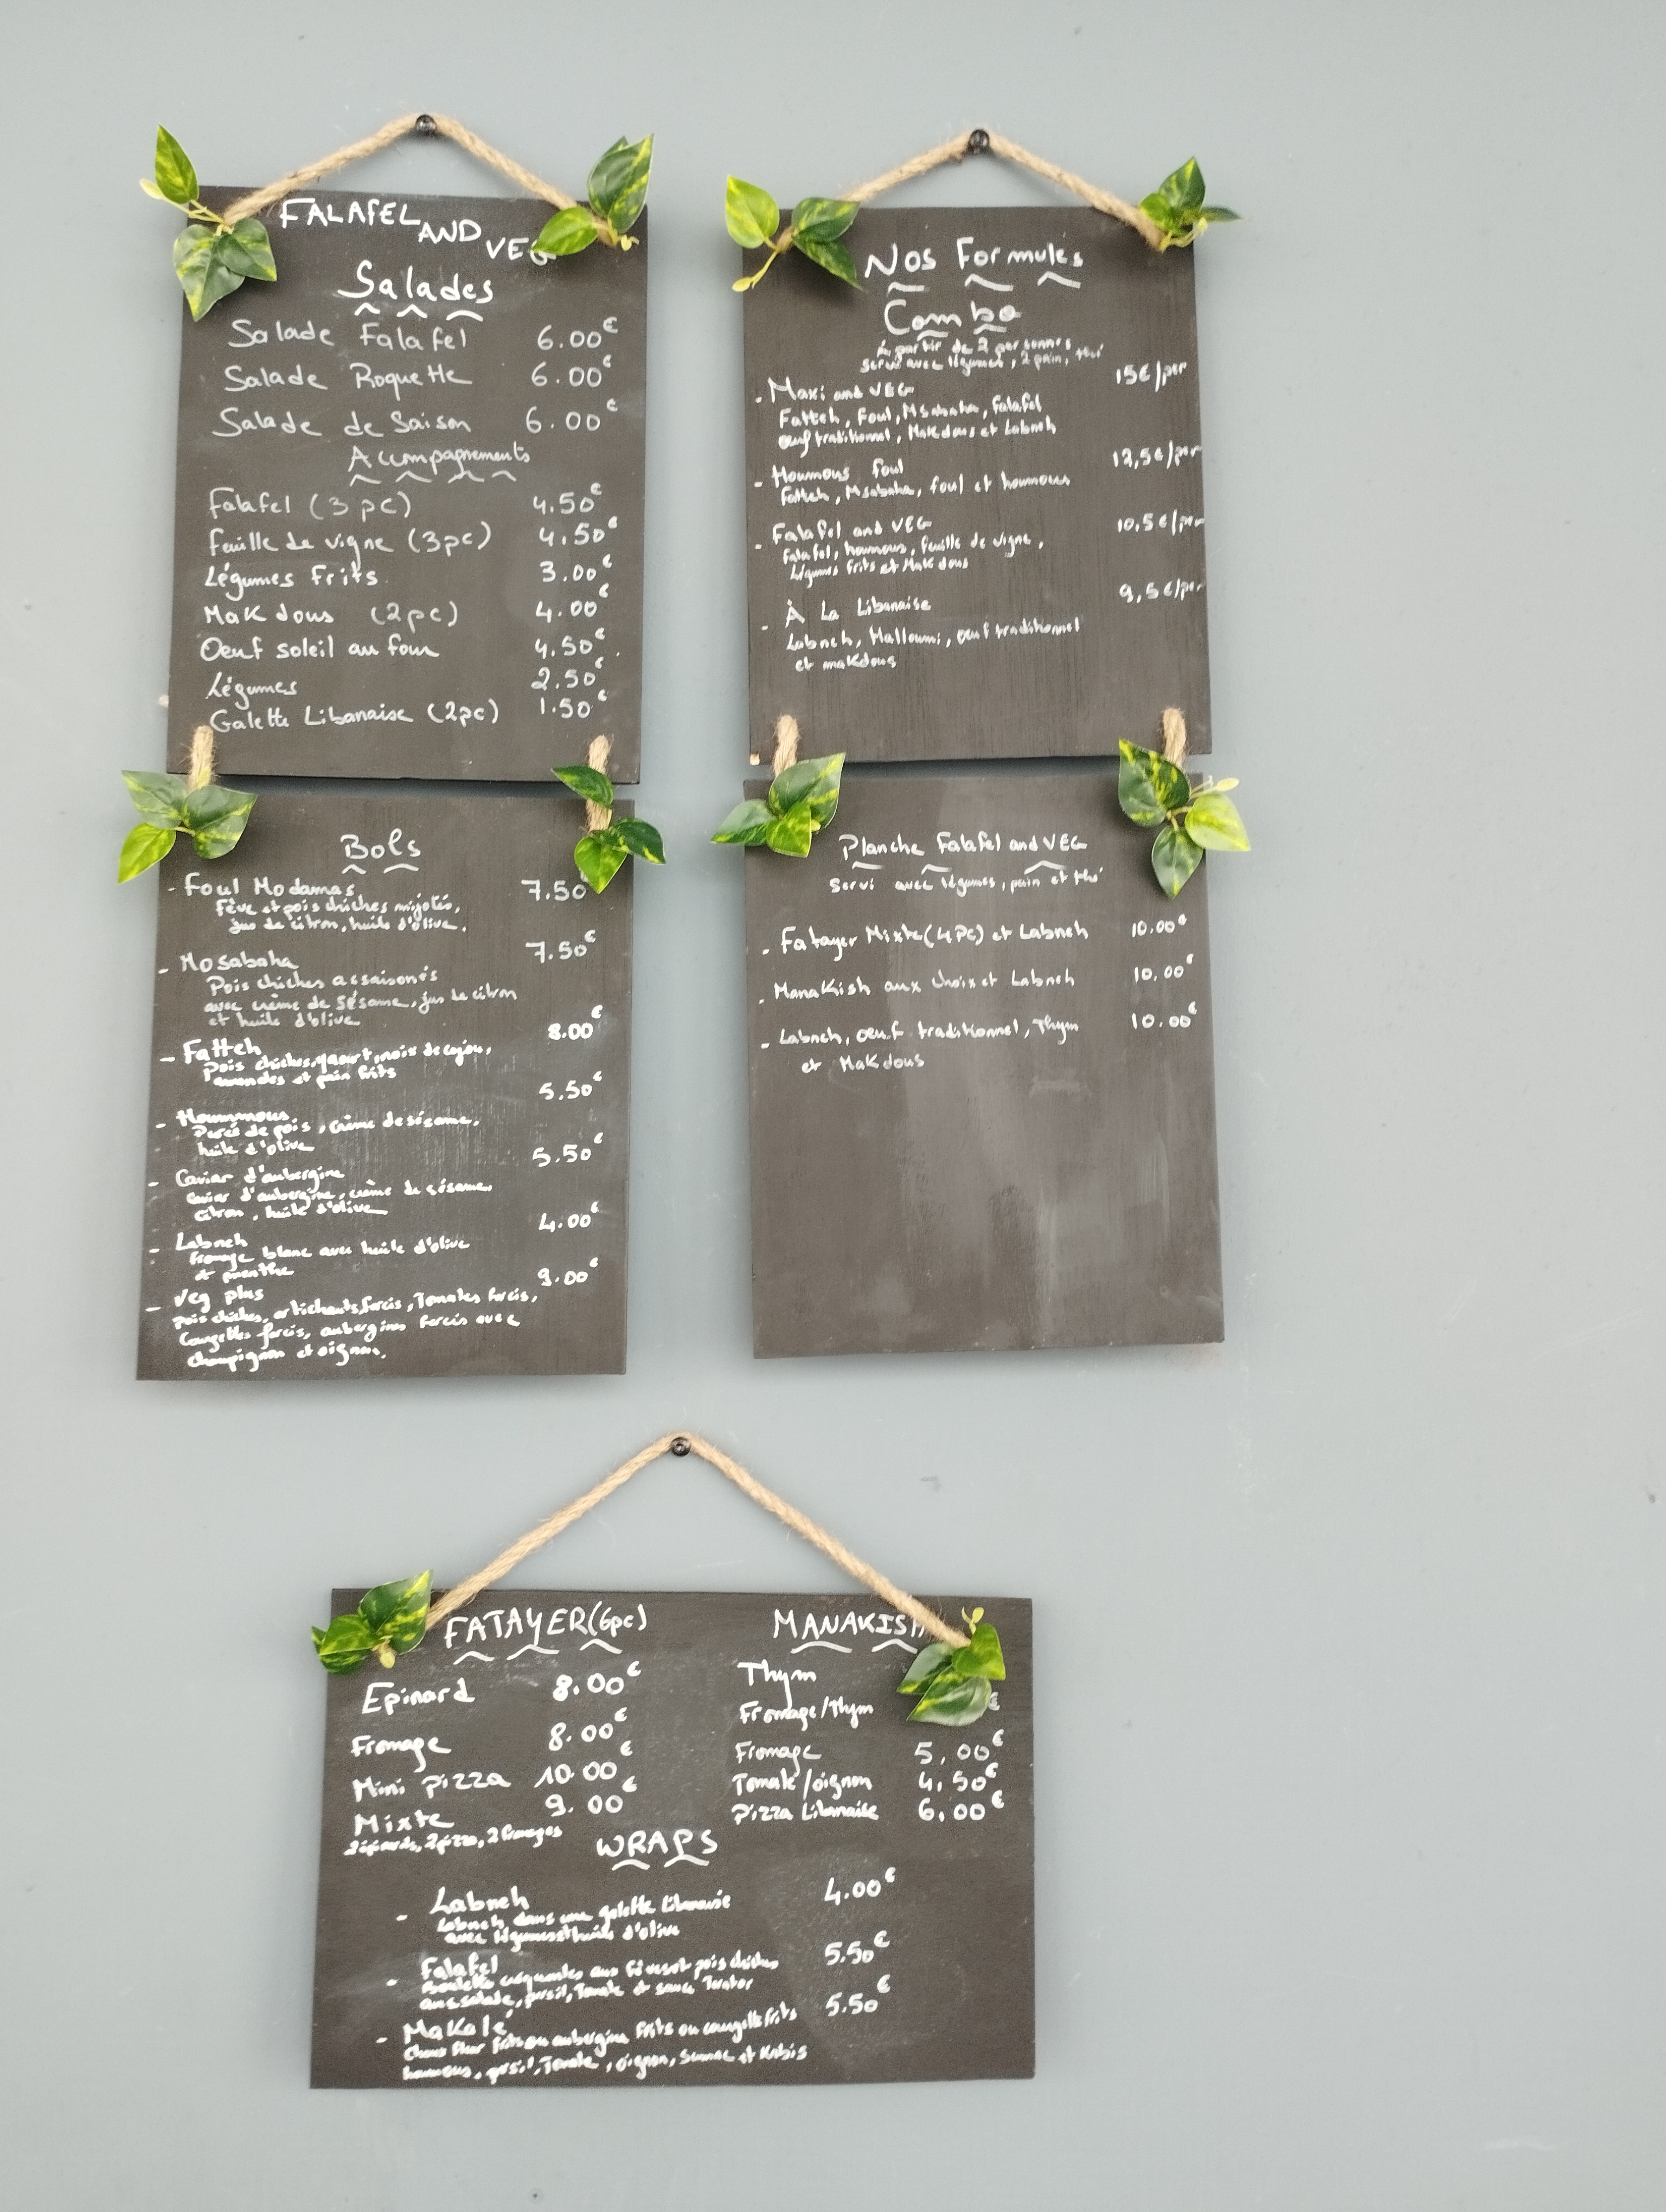 FALAFEL AND VEG
Salades
Salade Falafel 6.00€
Salade Roquette 6.00€
Salade de Saison 6.00€
Accompagnements
Falafel (3pc) 4.50€
Feuille de vigne (3pc) 4.50€
Légumes Frits 3.00€
MaKdous (2pc) 4.00€
Oeuf soleil au four 4.50€
Légumes 2.50€
Galette Libanaise (2pc) 1.50€
Bols
- Foul Modamas 7.50€
Fève et pois chiches mijotés,
jus de citron, huile d'olive.
- Mosabaha 7.50€
Pois chiches assaisonés
avec crème de sésame, jus de citron
et huile d'olive
- Fatteh 8.00€
Pois chiches, yaourt, noix de cajou,
amandes et pain frits
- Hoummous 5.50€
Purée de pois, crème de sésame,
huile d'olive
- Caviar d'aubergine 5.50€
Caviar d'aubergine, crème de sésame,
citron, huile d'olive
- Labneh 4.00€
fromage blanc avec huile d'olive
et menthe
- Veg plus 9.00€
pois chiches, artichauts farcis, Tomates farcis,
Courgettes farcis, aubergines farcis avec
champignon et oignon.
Nos Formules
Combo
à partir de 2 personnes
servi avec légumes, 2 pain, thé
- Maxi and VEG 15€/per
Fatteh, Foul, Msabaha, Falafel
œuf traditionnel, MaKdous et Labneh
- Houmous Foul 12,5€/per
Fatteh, Msabaha, foul et houmous
- Falafel and VEG 10,5€/per
Falafel, houmous, feuille de vigne,
Légumes frits et MaKdous
- À La Libanaise 9,5€/per
Labneh, Halloumi, œuf traditionnel
et makdous
Planche Falafel and VEG
Servi avec légumes, pain et thé
- Fatayer Mixte (4pc) et Labneh 10.00€
- ManaKish aux choix et Labneh 10.00€
- Labneh, oeuf traditionnel, Thym 10.00€
et MaKdous
FATAYER (6pc)
Epinard 8.00€
Fromage 8.00€
Mini pizza 10.00€
Mixte 9.00€
2 épinards, 2 pizza, 2 fromages
MANAKISH
Thym
Fromage/Thym €
Fromage 5,00€
Tomate/oignon 4,50€
Pizza Libanaise 6,00€
WRAPS
- Labneh 4.00€
Labneh dans une galette libanaise
avec légumes et huile d'olive
- Falafel 5.50€
Boulettes croquantes aux fèves et pois chiches
avec salade, persil, Tomate et sauce Tarator
- MaKalé 5.50€
Choux fleur frits ou aubergine frits ou courgette frits
houmous, persil, Tomate, oignon, Sumac et Kabis